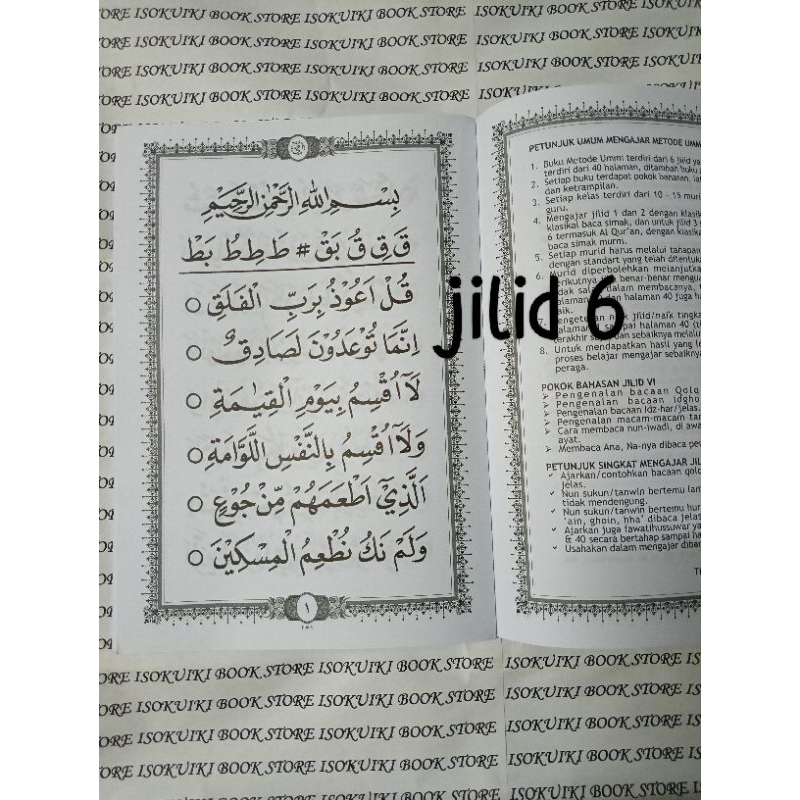 ISOKUIKI BOOK STORE ISOKUIKI BOOK STORE ISOKUIKI
ISOKUIKI BOOK STORE ISOKUIKI BOOK STORE ISOKUIKI
ISOKUIKI BOOK STORE ISOKUIKI BOOK STORE ISOKUIKI
ISOKUIKI BOOK STORE ISOKUIKI BOOK STORE
بِسْمِ اللهِ الرَّحْمٰنِ الرَّحِيْمِ
قَ قِ قُ بَقْ # طَ طِ طُ بَطْ
قُلْ اَعُوْذُ بِرَبِّ الْفَلَقِ ○
اِنَّمَا تُوْعَدُوْنَ لَصَادِقٌ ○
لَآ اُقْسِمُ بِيَوْمِ الْقِيٰمَةِ ○
وَلَآ اُقْسِمُ بِالنَّفْسِ اللَّوَّامَةِ ○
اَلَّذِيْٓ اَطْعَمَهُمْ مِّنْ جُوْعٍ ○
وَلَمْ نَكُ نُطْعِمُ الْمِسْكِيْنَ ○
١
jilid 6
PETUNJUK UMUM MENGAJAR METODE UMM
1. Buku Metode Ummi terdiri dari 6 jilid
terdiri dari 40 halaman, ditambah buku
2. Setiap buku terdapat pokok bahasan,
dan ketrampilan.
3. Setiap kelas terdiri dari 10 - 15
guru.
4. Mengajar jilid 1 dan 2 dengan
klasikal baca simak, dan untuk jilid 3
6 termasuk Al Qur'an, dengan
baca simak murni.
5. Setiap murid harus melalui
dengan standart yang telah
6. Murid diperbolehkan
benar-benar
salah dalam membacanya.
dan halaman 40 juga
7.
halaman 40
terakhir
8. Untuk mendapatkan hasil yang
proses belajar mengajar
peraga.
POKOK BAHASAN JILID VI
Pengenalan bacaan
Pengenalan bacaan
Pengenalan bacaan Idz-har/jelas.
Pengenalan macam-macam
Cara membaca nun-iwadl, di
ayat.
Membaca Ana, Na-nya dibaca
PETUNJUK SINGKAT MENGAJAR
Ajarkan/contohkan bacaan
jelas.
Nun sukun/tanwin bertemu
tidak mendengung.
Nun sukun/tanwin bertemu
'ain, ghoin, hha' dibaca
Ajarkan juga fawatihussuwar
& 40 secara bertahap sampai
Usahakan dalam mengajar
ISOKUIKI BOOK STORE ISOKUIKI BOOK STORE ISOKUIKI
ISOKUIKI BOOK STORE ISOKUIKI BOOK STORE ISOKUIKI
ISOKUIKI BOOK STORE ISOKUIKI BOOK STORE ISOKUIKI
ISOKUIKI BOOK STORE ISOKUIKI BOOK STORE ISOKUIKI
ISOKUIKI BOOK STORE ISOKUIKI BOOK STORE ISOKUIKI